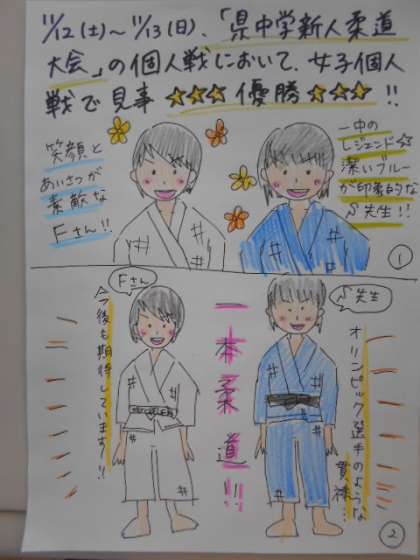 11/12(土)~11/13(日)、「県中学新人柔道
大会」の個人戦において、女子個人
戦で見事☆☆☆優勝☆☆☆!!
笑顔と
あいさつが
素敵な
Fさん!!
一中の
レジェンド☆
深いブルー
が印象的な
S先生!!
①
Fさん
今後も期待しています!!
一本柔道!!
S先生
オリンピック選手のような
貫禄…
②